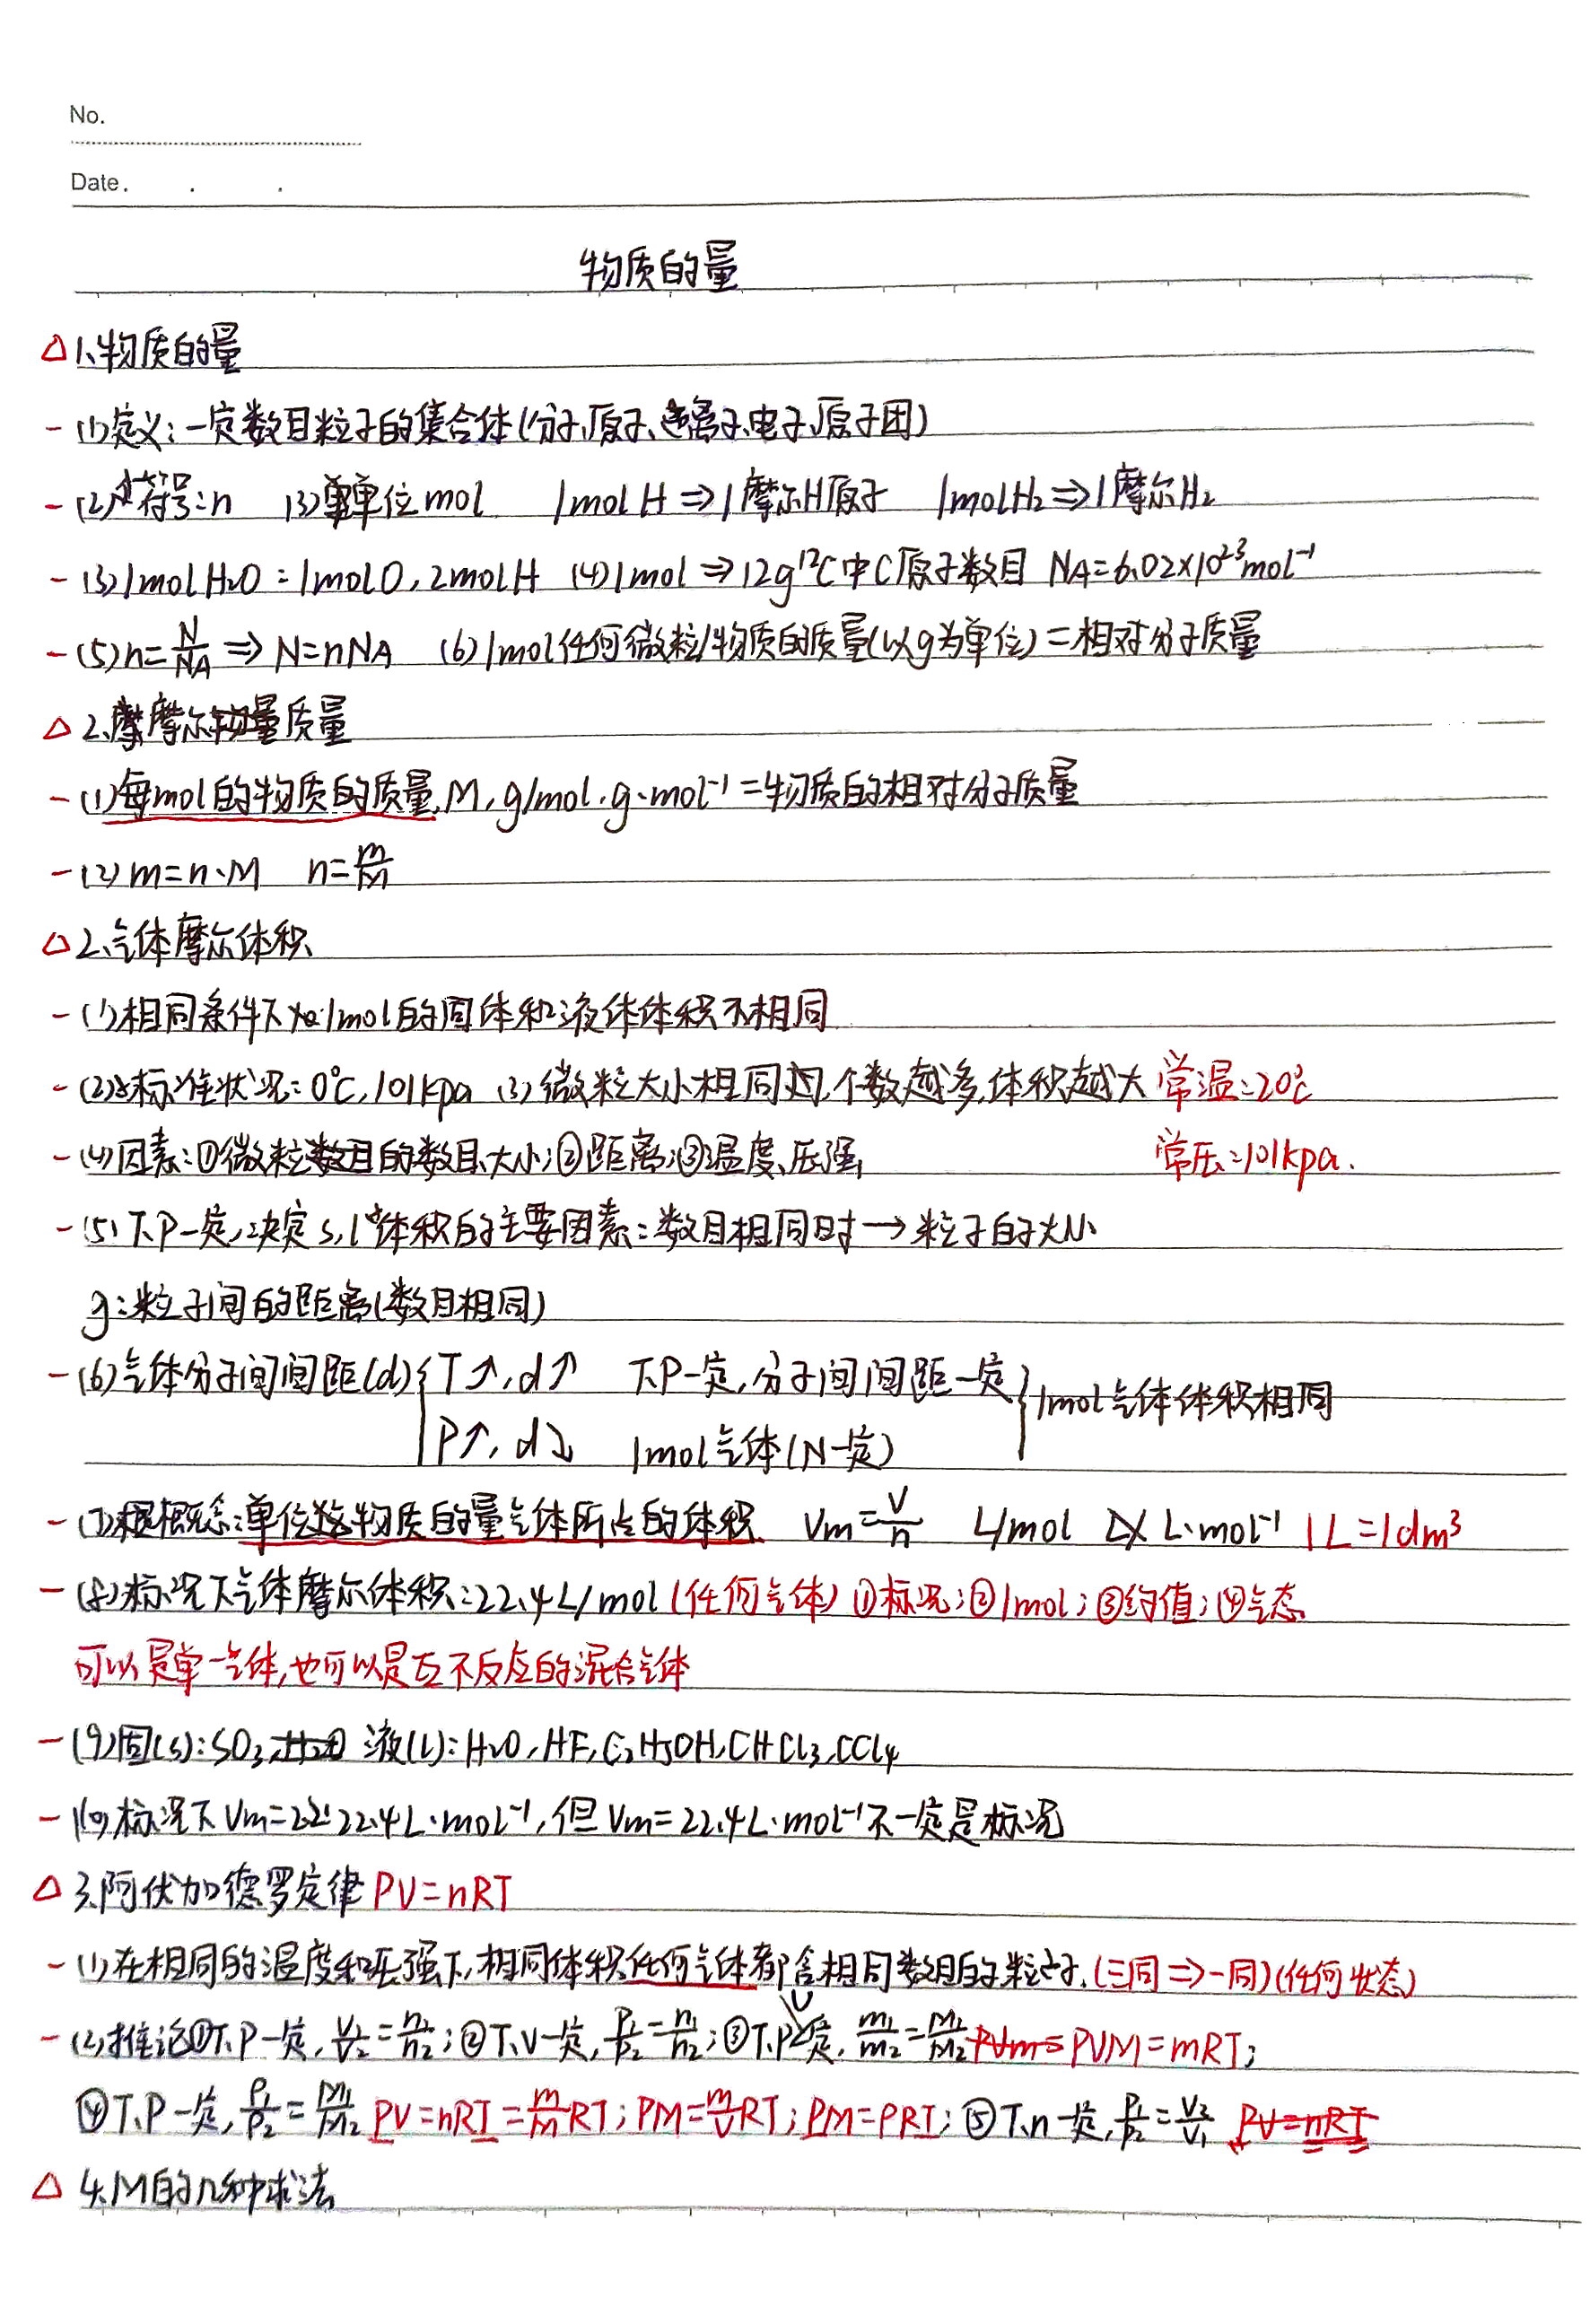 No.
Date.
物质的量
△1.物质的量
-(1)定义:一定数目粒子的集合体(分子、原子、离子、电子、原子团)
-(2)符号:n (3)单位mol 1molH⇒1摩尔H原子 1molH₂⇒1摩尔H₂
-(3)1molH₂O=1molO,2molH (4)1mol⇒12g¹²C中C原子数目 NA=6.02×10²³mol⁻¹
-(5)n=N/NA⇒N=nNA (6)1mol任何微粒/物质的质量(以g为单位)=相对分子质量
△2.摩尔质量
-(1)每mol的物质的质量,M,g/mol.g·mol⁻¹=物质的相对分子质量
-(2)m=n·M n=m/M
△2.气体摩尔体积
-(1)相同条件下1mol的固体和液体体积不相同
-(2)标准状况:0℃,101kpa (3)微粒大小相同时,个数越多,体积越大 常温:20℃
-(4)因素:①微粒的数目、大小;②距离;③温度、压强 常压:101kpa.
-(5)T、P一定,决定s,l体积的主要因素:数目相同时→粒子的大小
g:粒子间的距离(数目相同)
-(6)气体分子间间距(d){T↑,d↑ T、P一定,分子间间距一定}1mol气体体积相同
P↑,d↓ 1mol气体(N一定)
-(7)概念:单位物质的量气体所占的体积 Vm=V/n L/mol L·mol⁻¹ 1L=1dm³
-(8)标况下气体摩尔体积:22.4L/mol(任何气体)①标况;②1mol;③约值;④气态
可以是单一气体,也可以是互不反应的混合气体
-(9)固(s):SO₃ 液(l):H₂O,HF,C₂H₅OH,CHCl₃,CCl₄
-(10)标况下Vm=22.4L·mol⁻¹,但Vm=22.4L·mol⁻¹不一定是标况
△3.阿伏加德罗定律 PV=nRT
-(1)在相同的温度和压强下,相同体积任何气体都含相同数目的粒子.(三同⇒一同)(任何状态)
-(2)推论①T、P一定,V₁/V₂=n₁/n₂;②T、V一定,P₁/P₂=n₁/n₂;③T、P、V一定,m₁/m₂=M₁/M₂ PVM=mRT;
④T、P一定,ρ₁/ρ₂=M₁/M₂ PV=nRT=m/M RT;PM=m/V RT;PM=ρRT;⑤T、n一定,P₁/P₂=V₂/V₁ PV=nRT
△4.M的几种求法